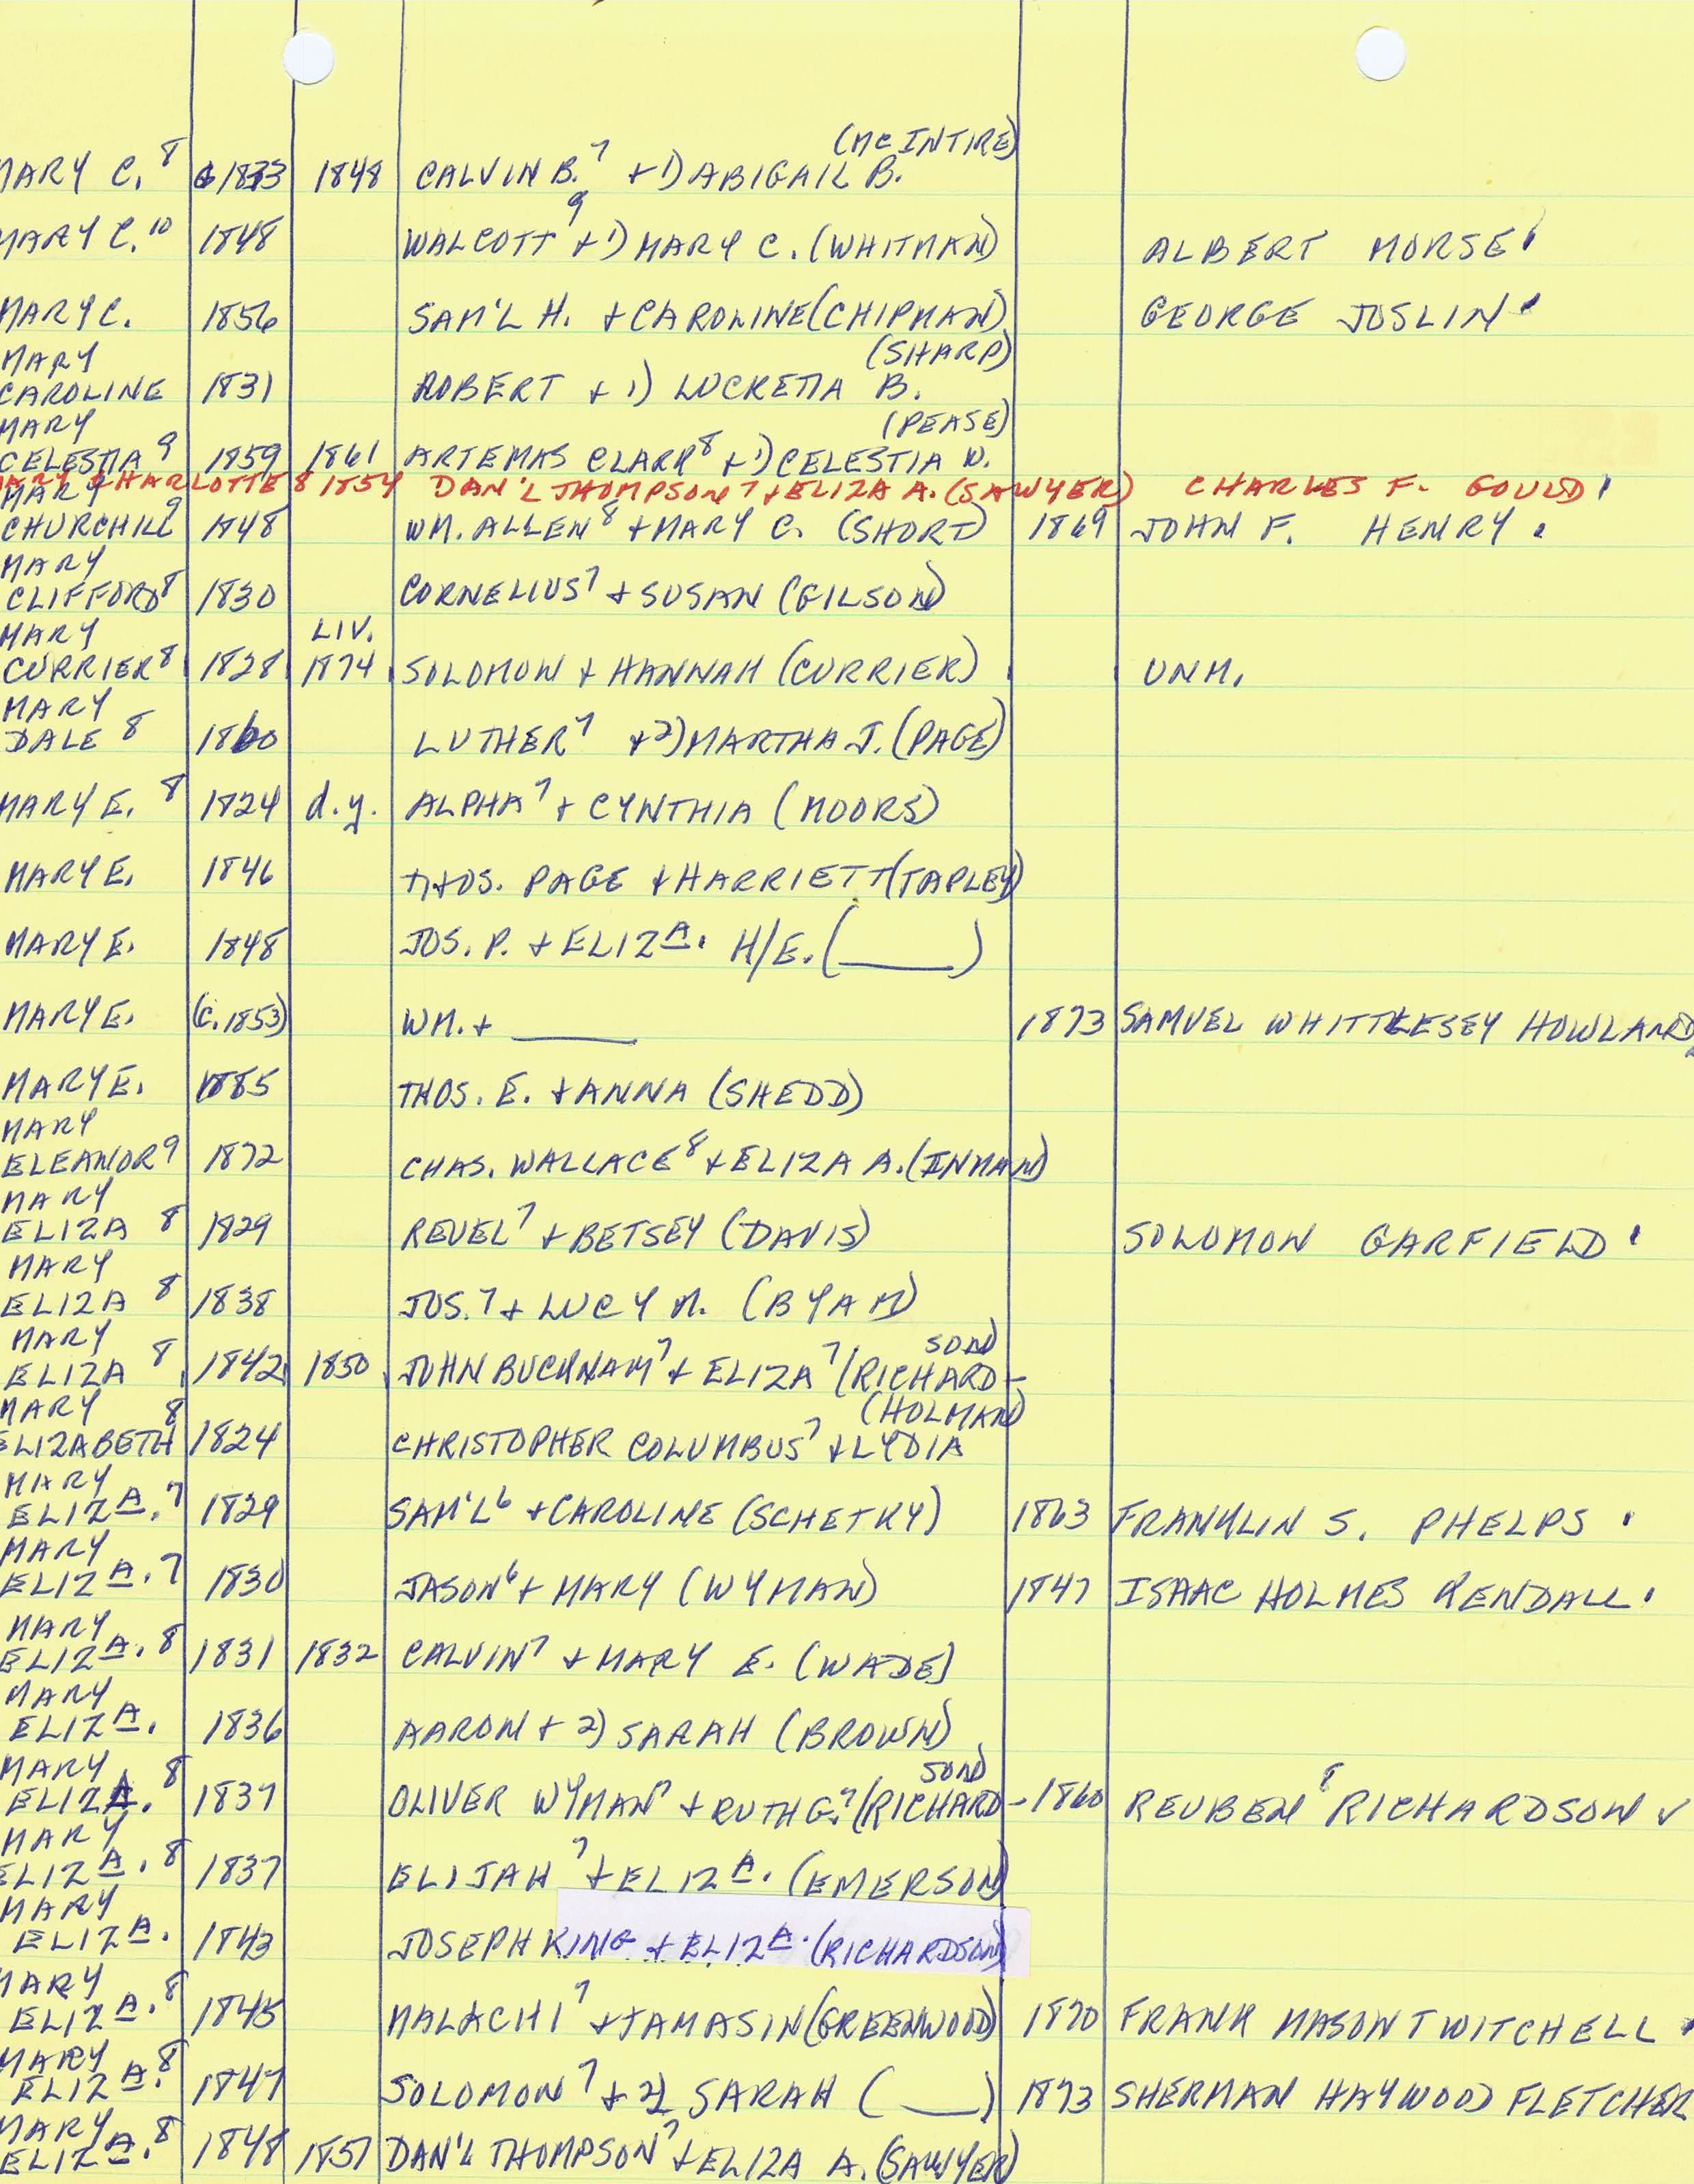 (MCINTIRE)
MARY C. 8 1833 1848 CALVIN B. 7 + 1) ABIGAIL B.
MARY C. 10 1848 WALCOTT 9 + 1) MARY C. (WHITMAN) ALBERT MORSE
MARY C. 1856 SAM'L H. + CAROLINE (CHIPMAN) GEORGE JOSLIN
MARY (SHARP)
CAROLINE 1831 ROBERT + 1) LUCRETIA B.
MARY (PEASE)
CELESTIA 9 1859 1861 ARTEMAS CLARK 8 + 1) CELESTIA W.
MARY CHARLOTTE 8 1854 DAN'L THOMPSON 7 + ELIZA A. (SAWYER) CHARLES F. GOULD
MARY
CHURCHILL 9 1848 WM. ALLEN 8 + MARY C. (SHORT) 1869 JOHN F. HENRY
MARY
CLIFFORD 8 1830 CORNELIUS 7 + SUSAN (GILSON)
MARY LIV.
CURRIER 8 1828 1874 SOLOMON + HANNAH (CURRIER) UNM.
MARY
DALE 8 1860 LUTHER 7 + 2) MARTHA J. (PAGE)
MARY E. 8 1824 d.y. ALPHA 7 + CYNTHIA (MOORS)
MARY E. 1846 THOS. PAGE + HARRIETT (TAPLEY)
MARY E. 1848 JOS. P. + ELIZA. H/E. (____)
MARY E. (c.1853) WM. + ____ 1873 SAMUEL WHITTLESEY HOWLAND
MARY E. 1885 THOS. E. + ANNA (SHEDD)
MARY
ELEANOR 9 1872 CHAS. WALLACE 8 + ELIZA A. (INMAN)
MARY
ELIZA 8 1829 REUEL 7 + BETSEY (DAVIS) SOLOMON GARFIELD
MARY
ELIZA 8 1838 JOS. 7 + LUCY M. (BYAM)
MARY SON)
ELIZA 8 1842 1850 JOHN BUCKNAM 7 + ELIZA 7 (RICHARD-
MARY (HOLMAN)
ELIZABETH 8 1824 CHRISTOPHER COLUMBUS 7 + LYDIA
MARY
ELIZA. 7 1829 SAM'L 6 + CAROLINE (SCHETKY) 1863 FRANKLIN S. PHELPS
MARY
ELIZA. 7 1830 JASON 6 + MARY (WYMAN) 1847 ISAAC HOLMES KENDALL
MARY
ELIZA. 8 1831 1832 CALVIN 7 + MARY E. (WADE)
MARY
ELIZA. 1836 AARON + 2) SARAH (BROWN)
MARY SON)
ELIZA. 8 1837 OLIVER WYMAN 7 + RUTH G. 7 (RICHARD- 1860 REUBEN 8 RICHARDSON ✓
MARY
ELIZA. 8 1837 ELIJAH 7 + ELIZA. (EMERSON)
MARY
ELIZA. 1843 JOSEPH KING + ELIZA. (RICHARDSON)
MARY
ELIZA. 8 1845 MALACHI 7 + TAMASIN (GREENWOOD) 1870 FRANK MASON TWITCHELL
MARY
ELIZA. 8 1847 SOLOMON 7 + 2) SARAH (____) 1873 SHERMAN HAYWOOD FLETCHER
MARY
ELIZA. 8 1848 1857 DAN'L THOMPSON 7 + ELIZA A. (SAWYER)